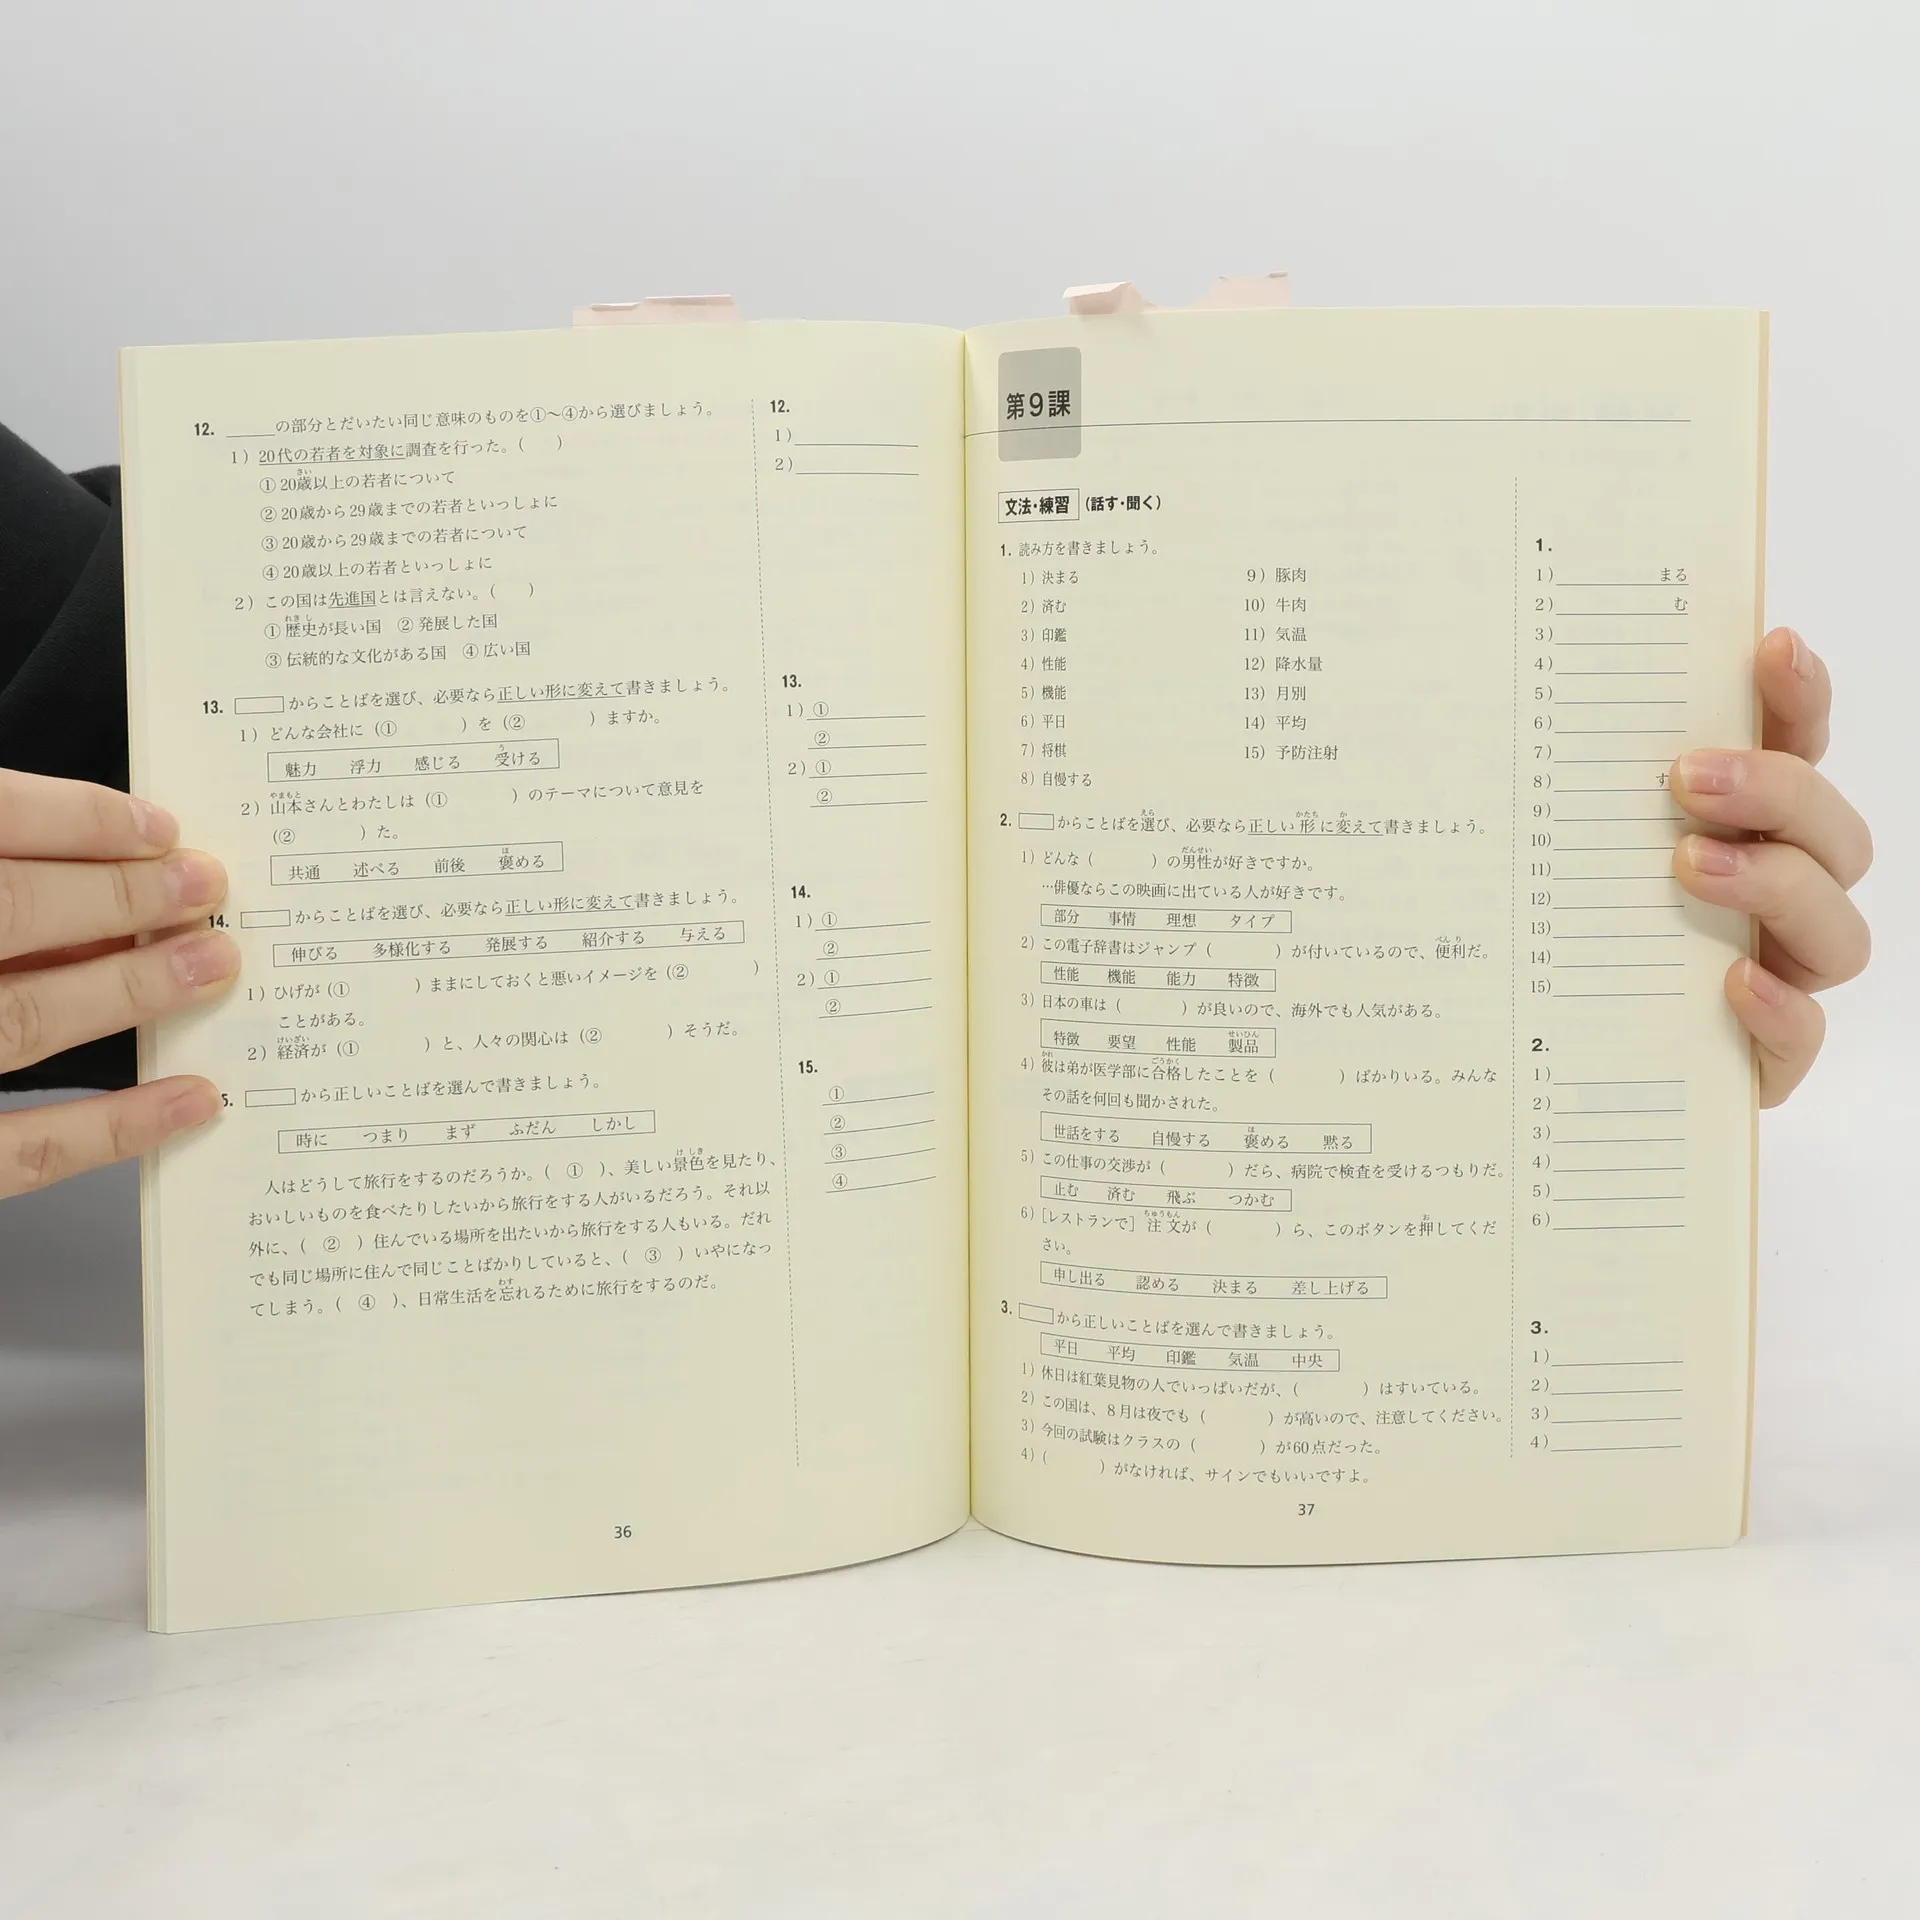 12. ＿＿＿の部分とだいたい同じ意味のものを①～④から選びましょう。
1）20代の若者を対象に調査を行った。（　　）
さい
① 20歳以上の若者について
② 20歳から29歳までの若者といっしょに
③ 20歳から29歳までの若者について
④ 20歳以上の若者といっしょに
2）この国は先進国とは言えない。（　　）
れき し
① 歴史が長い国　② 発展した国
③ 伝統的な文化がある国　④ 広い国
13. からことばを選び、必要なら正しい形に変えて書きましょう。
1）どんな会社に（①　　　）を（②　　　）ますか。
う
魅力　浮力　感じる　受ける
やまもと
2）山本さんとわたしは（①　　　）のテーマについて意見を
（②　　　）た。
ほ
共通　述べる　前後　褒める
14. からことばを選び、必要なら正しい形に変えて書きましょう。
伸びる　多様化する　発展する　紹介する　与える
1）ひげが（①　　　）ままにしておくと悪いイメージを（②　　　）
ことがある。
けいざい
2）経済が（①　　　）と、人々の関心は（②　　　）そうだ。
5. から正しいことばを選んで書きましょう。
時に　つまり　まず　ふだん　しかし
け しき
人はどうして旅行をするのだろうか。（　①　）、美しい景色を見たり、
おいしいものを食べたりしたいから旅行をする人がいるだろう。それ以
外に、（　②　）住んでいる場所を出たいから旅行をする人もいる。だれ
でも同じ場所に住んで同じことばかりしていると、（　③　）いやになっ
わす
てしまう。（　④　）、日常生活を忘れるために旅行をするのだ。
12.
1）
2）
13.
1）①
②
2）①
②
14.
1）①
②
2）①
②
15.
①
②
③
④
36
第9課
文法・練習（話す・聞く）
1. 読み方を書きましょう。
1）決まる
2）済む
3）印鑑
4）性能
5）機能
6）平日
7）将棋
8）自慢する
9）豚肉
10）牛肉
11）気温
12）降水量
13）月別
14）平均
15）予防注射
えら　かたち　か
2. からことばを選び、必要なら正しい形に変えて書きましょう。
だんせい
1）どんな（　　　）の男性が好きですか。
…俳優ならこの映画に出ている人が好きです。
部分　事情　理想　タイプ
べんり
2）この電子辞書はジャンプ（　　　）が付いているので、便利だ。
性能　機能　能力　特徴
3）日本の車は（　　　）が良いので、海外でも人気がある。
せいひん
特徴　要望　性能　製品
かれ　ごうかく
4）彼は弟が医学部に合格したことを（　　　）ばかりいる。みんな
その話を何回も聞かされた。
ほ
世話をする　自慢する　褒める　黙る
5）この仕事の交渉が（　　　）だら、病院で検査を受けるつもりだ。
止む　済む　飛ぶ　つかむ
ちゅうもん　お
6）［レストランで］注文が（　　　）ら、このボタンを押してくだ
さい。
申し出る　認める　決まる　差し上げる
3. から正しいことばを選んで書きましょう。
平日　平均　印鑑　気温　中央
1）休日は紅葉見物の人でいっぱいだが、（　　　）はすいている。
2）この国は、8月は夜でも（　　　）が高いので、注意してください。
3）今回の試験はクラスの（　　　）が60点だった。
4）（　　　）がなければ、サインでもいいですよ。
1.
1）まる
2）む
3）
4）
5）
6）
7）
8）す
9）
10）
11）
12）
13）
14）
15）
2.
1）
2）
3）
4）
5）
6）
3.
1）
2）
3）
4）
37